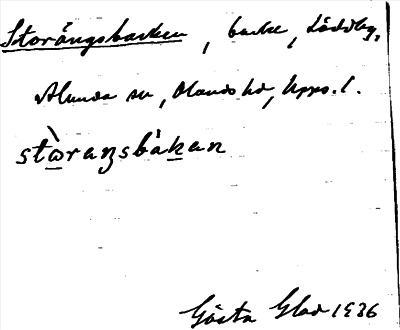 Storängsbacken, backe, Löddby,
Alunda sn, Olands hd, Upps. l.
stòraŋsbàkan
Gösta Glad 1936